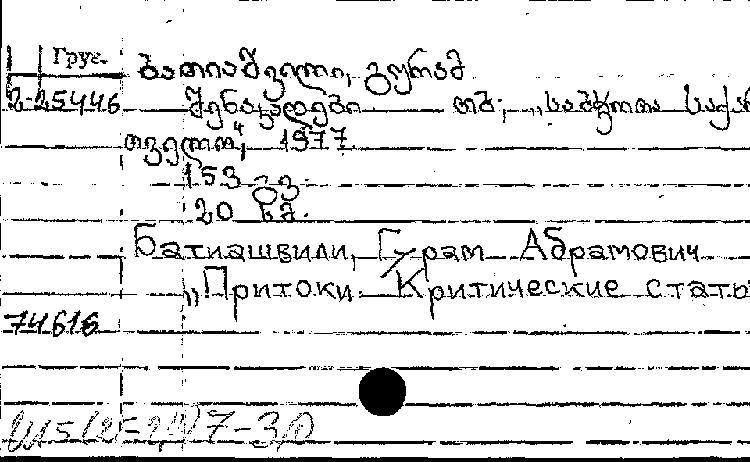 Груз.
ბათიაშვილი, გურამ
2-25446 შენაკადები თბ., „საბჭოთა საქარ
თველო“, 1977
153 გვ.
20 კპ.
Батиашвили, Гурам Абрамович
„Притоки. Критические стать
74616